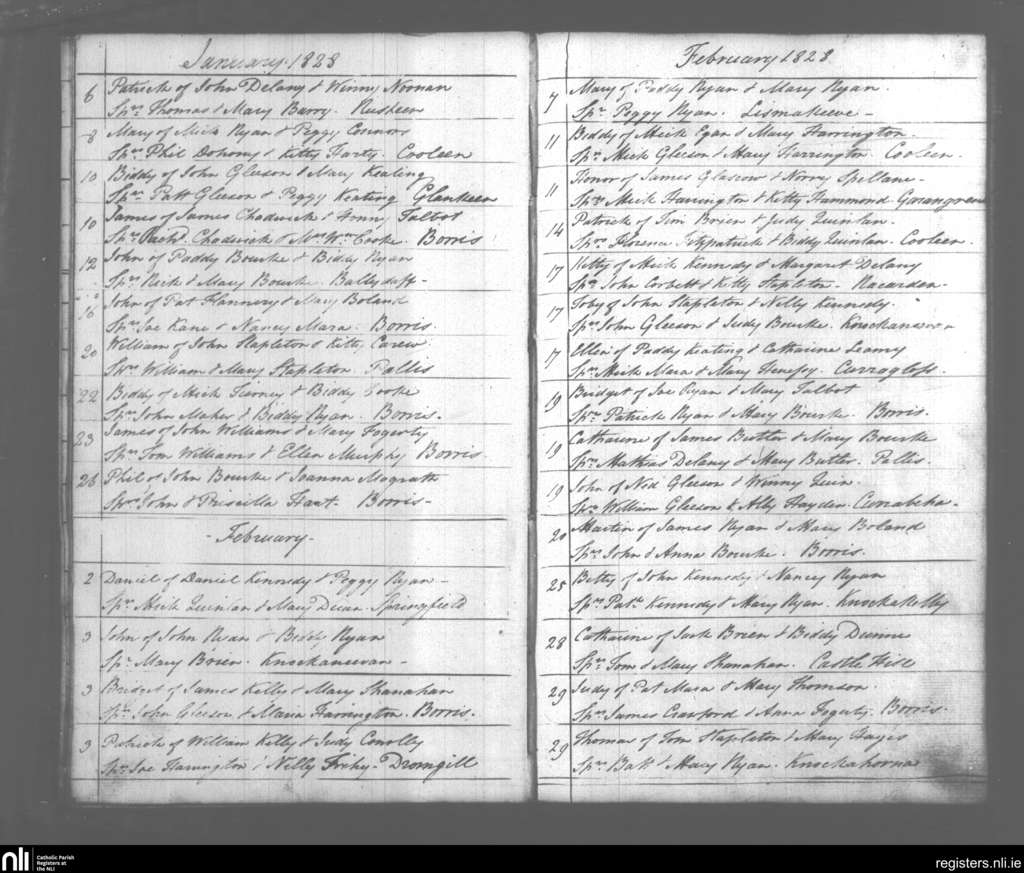 January 1828
6 Patrick of John Delany & Winny Noonan
Sprs Thomas & Mary Barry. Rusheen
8 Mary of Mick Ryan & Peggy Connors
Sprs Phil Dohony & Kitty Harty. Cooleen
10 Biddy of John Gleeson & Mary Keating
Sprs Patt Gleeson & Peggy Keating Glankeen
10 James of James Chadwick & Anny Talbot
Sprs Richd. Chadwick & Mrs. Wm. Cooke Borris
12 John of Paddy Bourke & Biddy Ryan
Sprs Nick & Mary Bourke. Ballyduff -
16 John of Pat Flannery & Mary Boland
Sprs Joe Kane & Nancy Mara. Borris.
20 William of John Stapleton & Kitty Carew
Sprs William & Mary Stapleton. Pallis
22 Biddy of Mick Tierney & Biddy Cooke
Sprs John Maher & Biddy Ryan. Borris.
23 James of John Williams & Mary Fogerty
Sprs Tom Williams & Ellen Murphy Borris.
26 Phil of John Bourke & Joanna Magrath
Sprs John & Priscilla Hart. Borris -
- February -
2 Daniel of Daniel Kennedy & Peggy Ryan -
Sprs Mick Quinlan & Mary Dwan Springfield
3 John of John Ryan & Biddy Ryan
Spr. Mary Brien. Knockanevan -
3 Bridget of James Kelly & Mary Shanahan
Sprs John Gleeson & Maria Harrington. Borris.
3 Patrick of William Kelly & Judy Conolly
Sprs Joe Harrington & Nelly Dromgill
February 1828
7 Mary of Paddy Ryan & Mary Ryan.
Spr. Peggy Ryan. Lismakeeve -
11 Biddy of Mick Egan & Mary Harrington.
Sprs Mick Gleeson & Mary Harrington. Cooleen.
11 Honor of James Glascow & Norry Spellane -
Sprs Mick Harrington & Kitty Hammond
14 Patrick of Jim Brien & Judy Quinlan.
Sprs Florence Fitzpatrick & Biddy Quinlan. Cooleen.
17 Kitty of Mick Kennedy & Margaret Delany
Sprs John Corbett & Kitty Stapleton -
17 Toby of John Stapleton & Nelly Kennedy.
Sprs John Gleeson & Judy Bourke.
17 Ellen of Paddy Keating & Catharine Leamy
Sprs Mick Mara & Mary
19 Bridget of Joe Ryan & Mary Talbot
Sprs Patrick Ryan & Mary Bourke. Borris.
19 Catharine of James Butler & Mary Bourke
Sprs Mathias Delany & Mary Butler. Pallis.
19 John of Ned Gleeson & Winny Quin.
Sprs William Gleeson & Ally Hayden. Currabeha -
20 Martin of James Ryan & Mary Boland
Sprs John & Anna Bourke. Borris.
25 Betty of John Kennedy & Nancy Ryan
Sprs Patk. Kennedy & Mary Ryan. Knockakelly
28 Catharine of Jack Brien & Biddy Dunne
Sprs Tom & Mary Shanahan. Castle Hill
29 Judy of Pat Mara & Mary Thomson.
Sprs James Crawford & Anna Fogerty. Borris.
29 Thomas of Tom Stapleton & Mary Hayes
Sprs Batt & Mary Ryan. Knockahorna
nli
Catholic Parish
Registers at
the NLI
registers.nli.ie